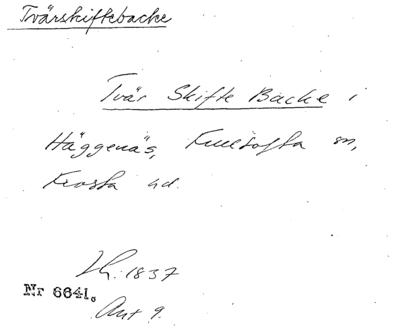 Tvärskiftebacke
Tvär Skifte Backe i
Häggenäs, Kullsofta sn,
Frosta hd.
Lh: 1837
Nr 6641.
Akt 9.